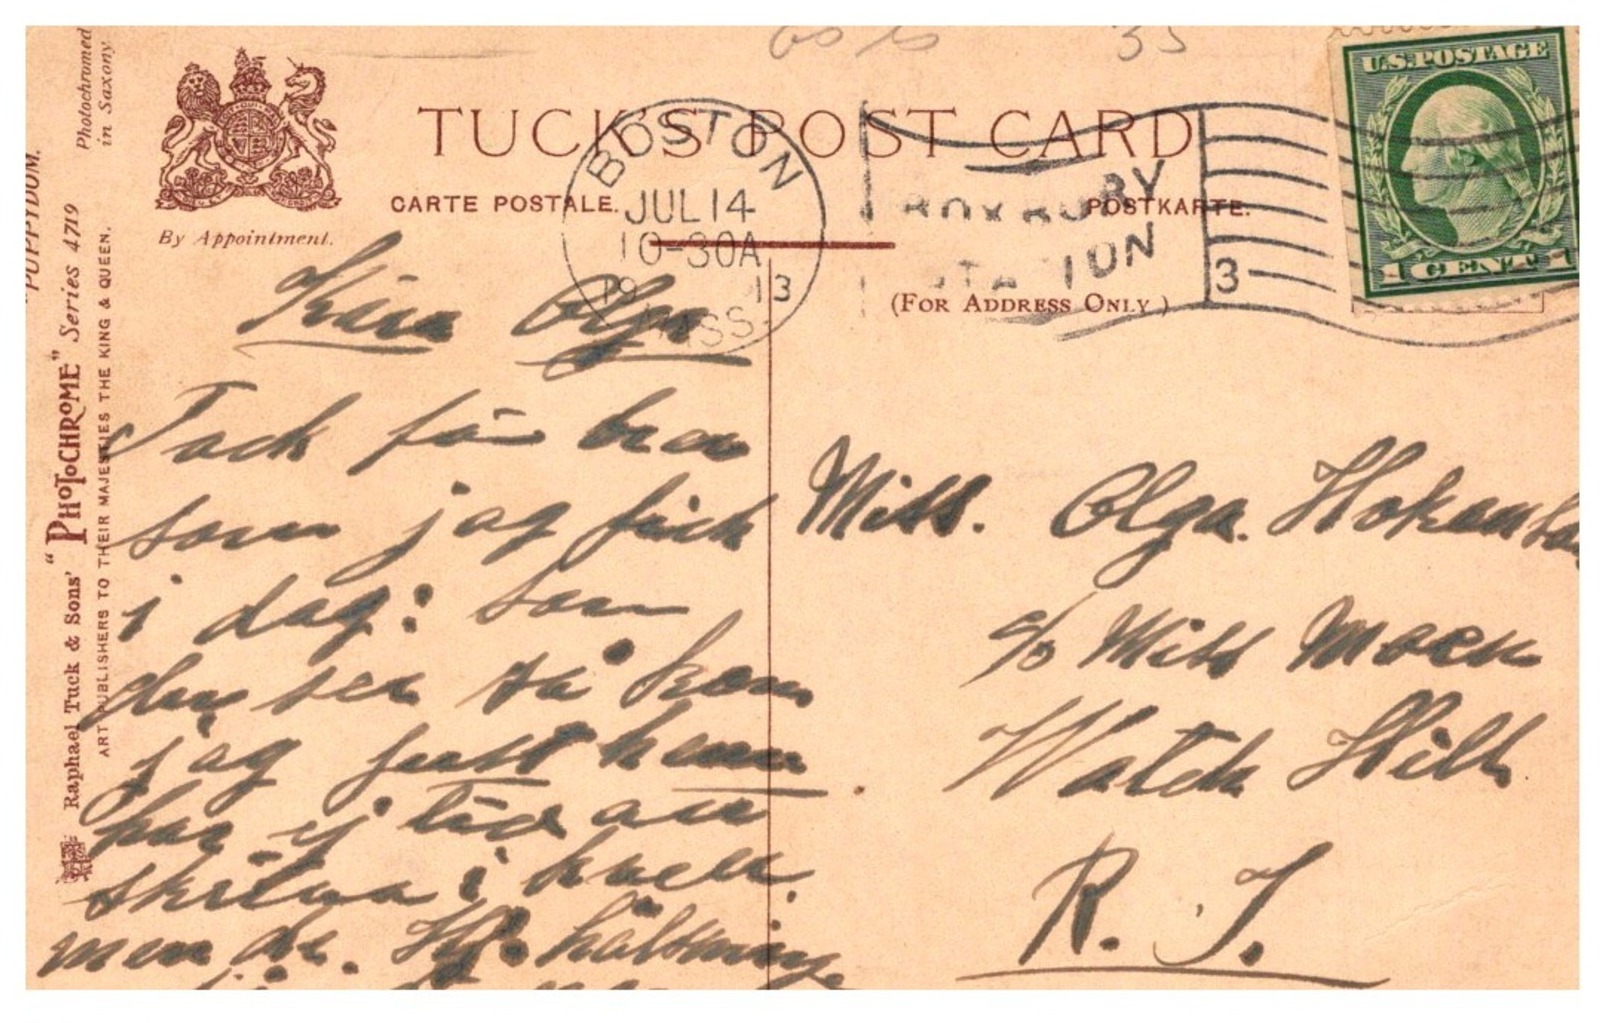 Photochromed
in Saxony.
"PUPPYDOM."
Raphael Tuck & Sons' "PHOTOCHROME" Series 4719
ART PUBLISHERS TO THEIR MAJESTIES THE KING & QUEEN.
By Appointment.
TUCK'S POST CARD
CARTE POSTALE.
POSTKARTE.
(FOR ADDRESS ONLY.)
BOSTON
JUL 14
10-30A
19 13
MASS.
ROXBURY
STATION
3
35
U.S. POSTAGE
1 CENT 1
Kära Olga
Tack för brev
som jag fick
i dag: som
du ser så kom
jag just hem
har ej tid att
skriva i kväll.
men de. Hj. hälsning
Miss. Olga. Hokanson
c/o Miss
Watch Hill
R. I.